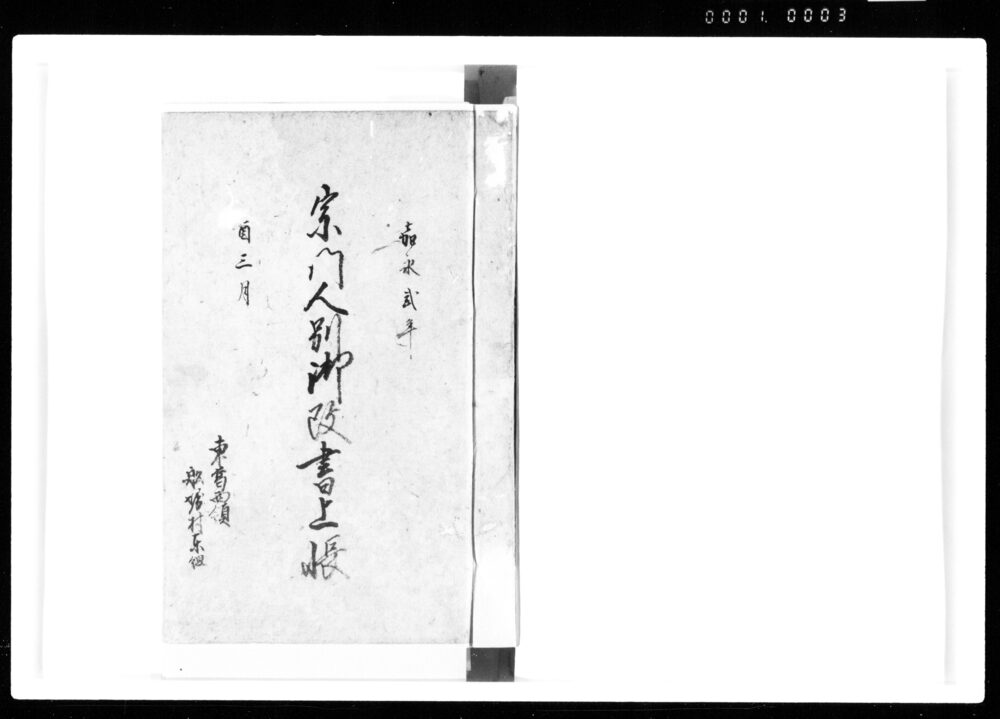 0001. 0003
嘉永弐年
宗門人別御改書上帳
酉三月
東葛西領
村東組